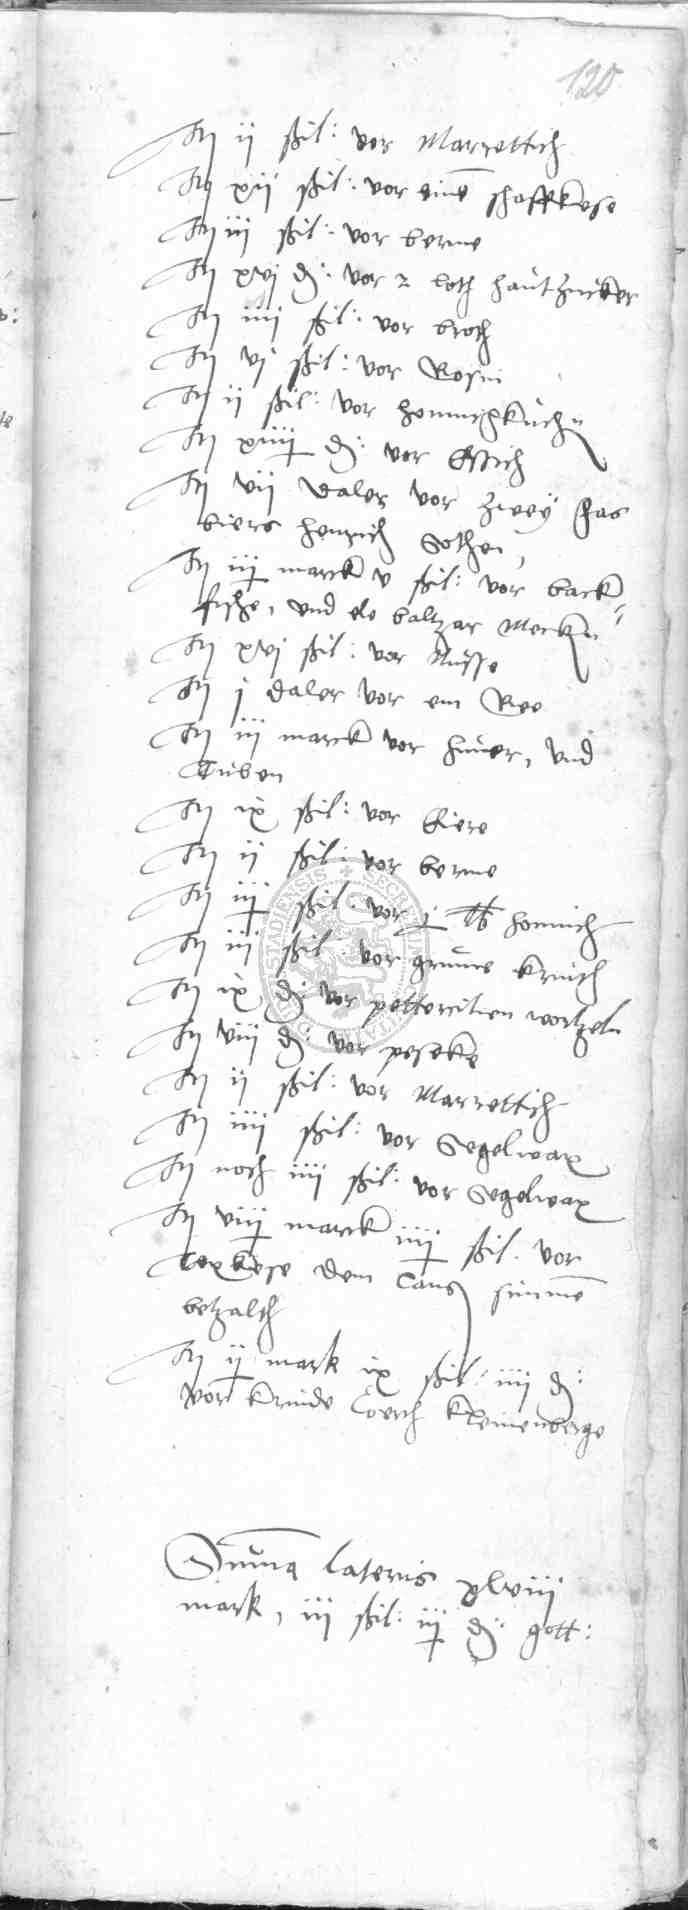 120
It ij ßil: vor Marrettich
It xij ßil: vor eine schaffkese
It iij ßil: vor berme
It xvj d: vor 2 loth hautzucker
It iiij ßil: vor broth
It vj ßil: vor Rosin
It ij ßil: vor honnichkuchn
It xiiij d: vor Essich
It vij daler vor zwey fas
biers henrich Gothen,
It iij marck v ßil: vor back
fische, und ele baltzar Meckn
It xvj ßil: vor Nusse
It j daler vor ein Ree
It iij marck vor huner, und
Duben
It ix ßil: vor Eiere
It ij ßil: vor berme
It iij ßil: vor j lb honnich
It iij ßil: vor grune kruth
It ix d: vor pettercilien wortzeln
It viij d: vor peseke
It ij ßil: vor Marrettich
It iiij ßil: vor Segelwax
It noch iiij ßil: vor Segelwax
It viij marck iiij ßil: vor
kese dem Claus
betzalth
It ij mark ix ßil: iiij d:
vor krude Coerth Kleinenberge
Summa lateris xlviij
mark, iij ßil: iij d: gott:
SECRETUM
STADIENSIS